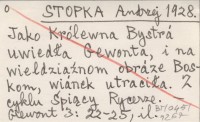 o STOPKA Andrzej 1928.
Jako Królewna Bystrá
uwiedła Gewonta, i na
wieldziaźnom obráze Bos-
kom, wiánek utraciła. Z
cyklu Śpiący Rycerze.
Giewont 3: 22-25, il.